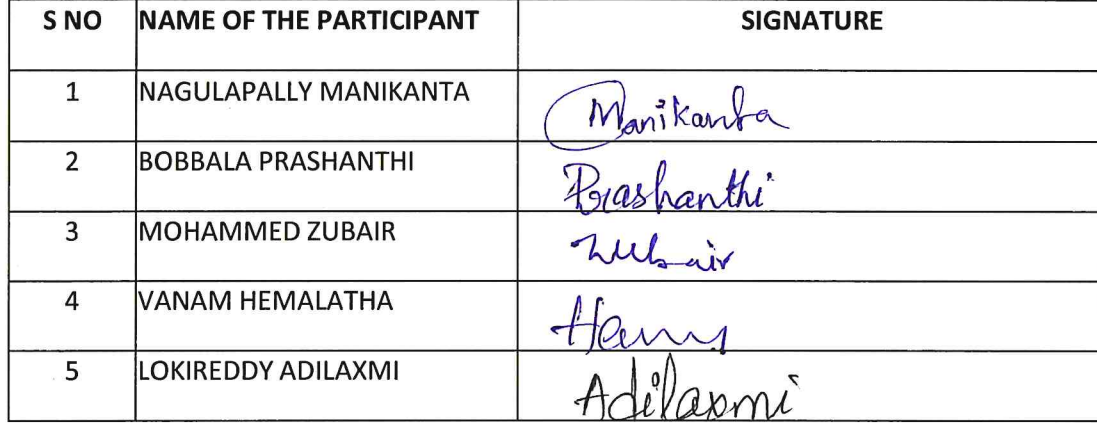 S NO NAME OF THE PARTICIPANT SIGNATURE
1 NAGULAPALLY MANIKANTA Manikanta
2 BOBBALA PRASHANTHI Prashanthi
3 MOHAMMED ZUBAIR Zubair
4 VANAM HEMALATHA
5 LOKIREDDY ADILAXMI Adilaxmi